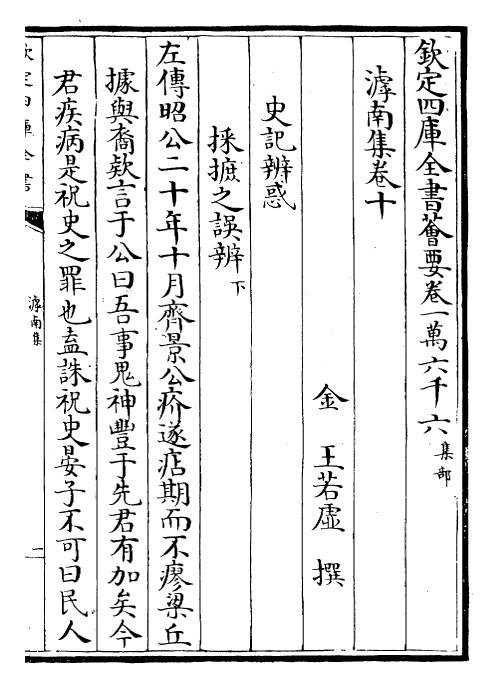 欽定四庫全書薈要卷一萬六千六 集部
滹南集卷十
金 王若虛 撰
史記辨惑
採摭之誤辨下
左傳昭公二十年十月齊景公疥遂痁期而不瘳梁丘
據與裔欵言于公曰吾事鬼神豐于先君有加矣今
君疾病是祝史之罪也盍誅祝史晏子不可曰民人
欽定四庫全書
滹南集